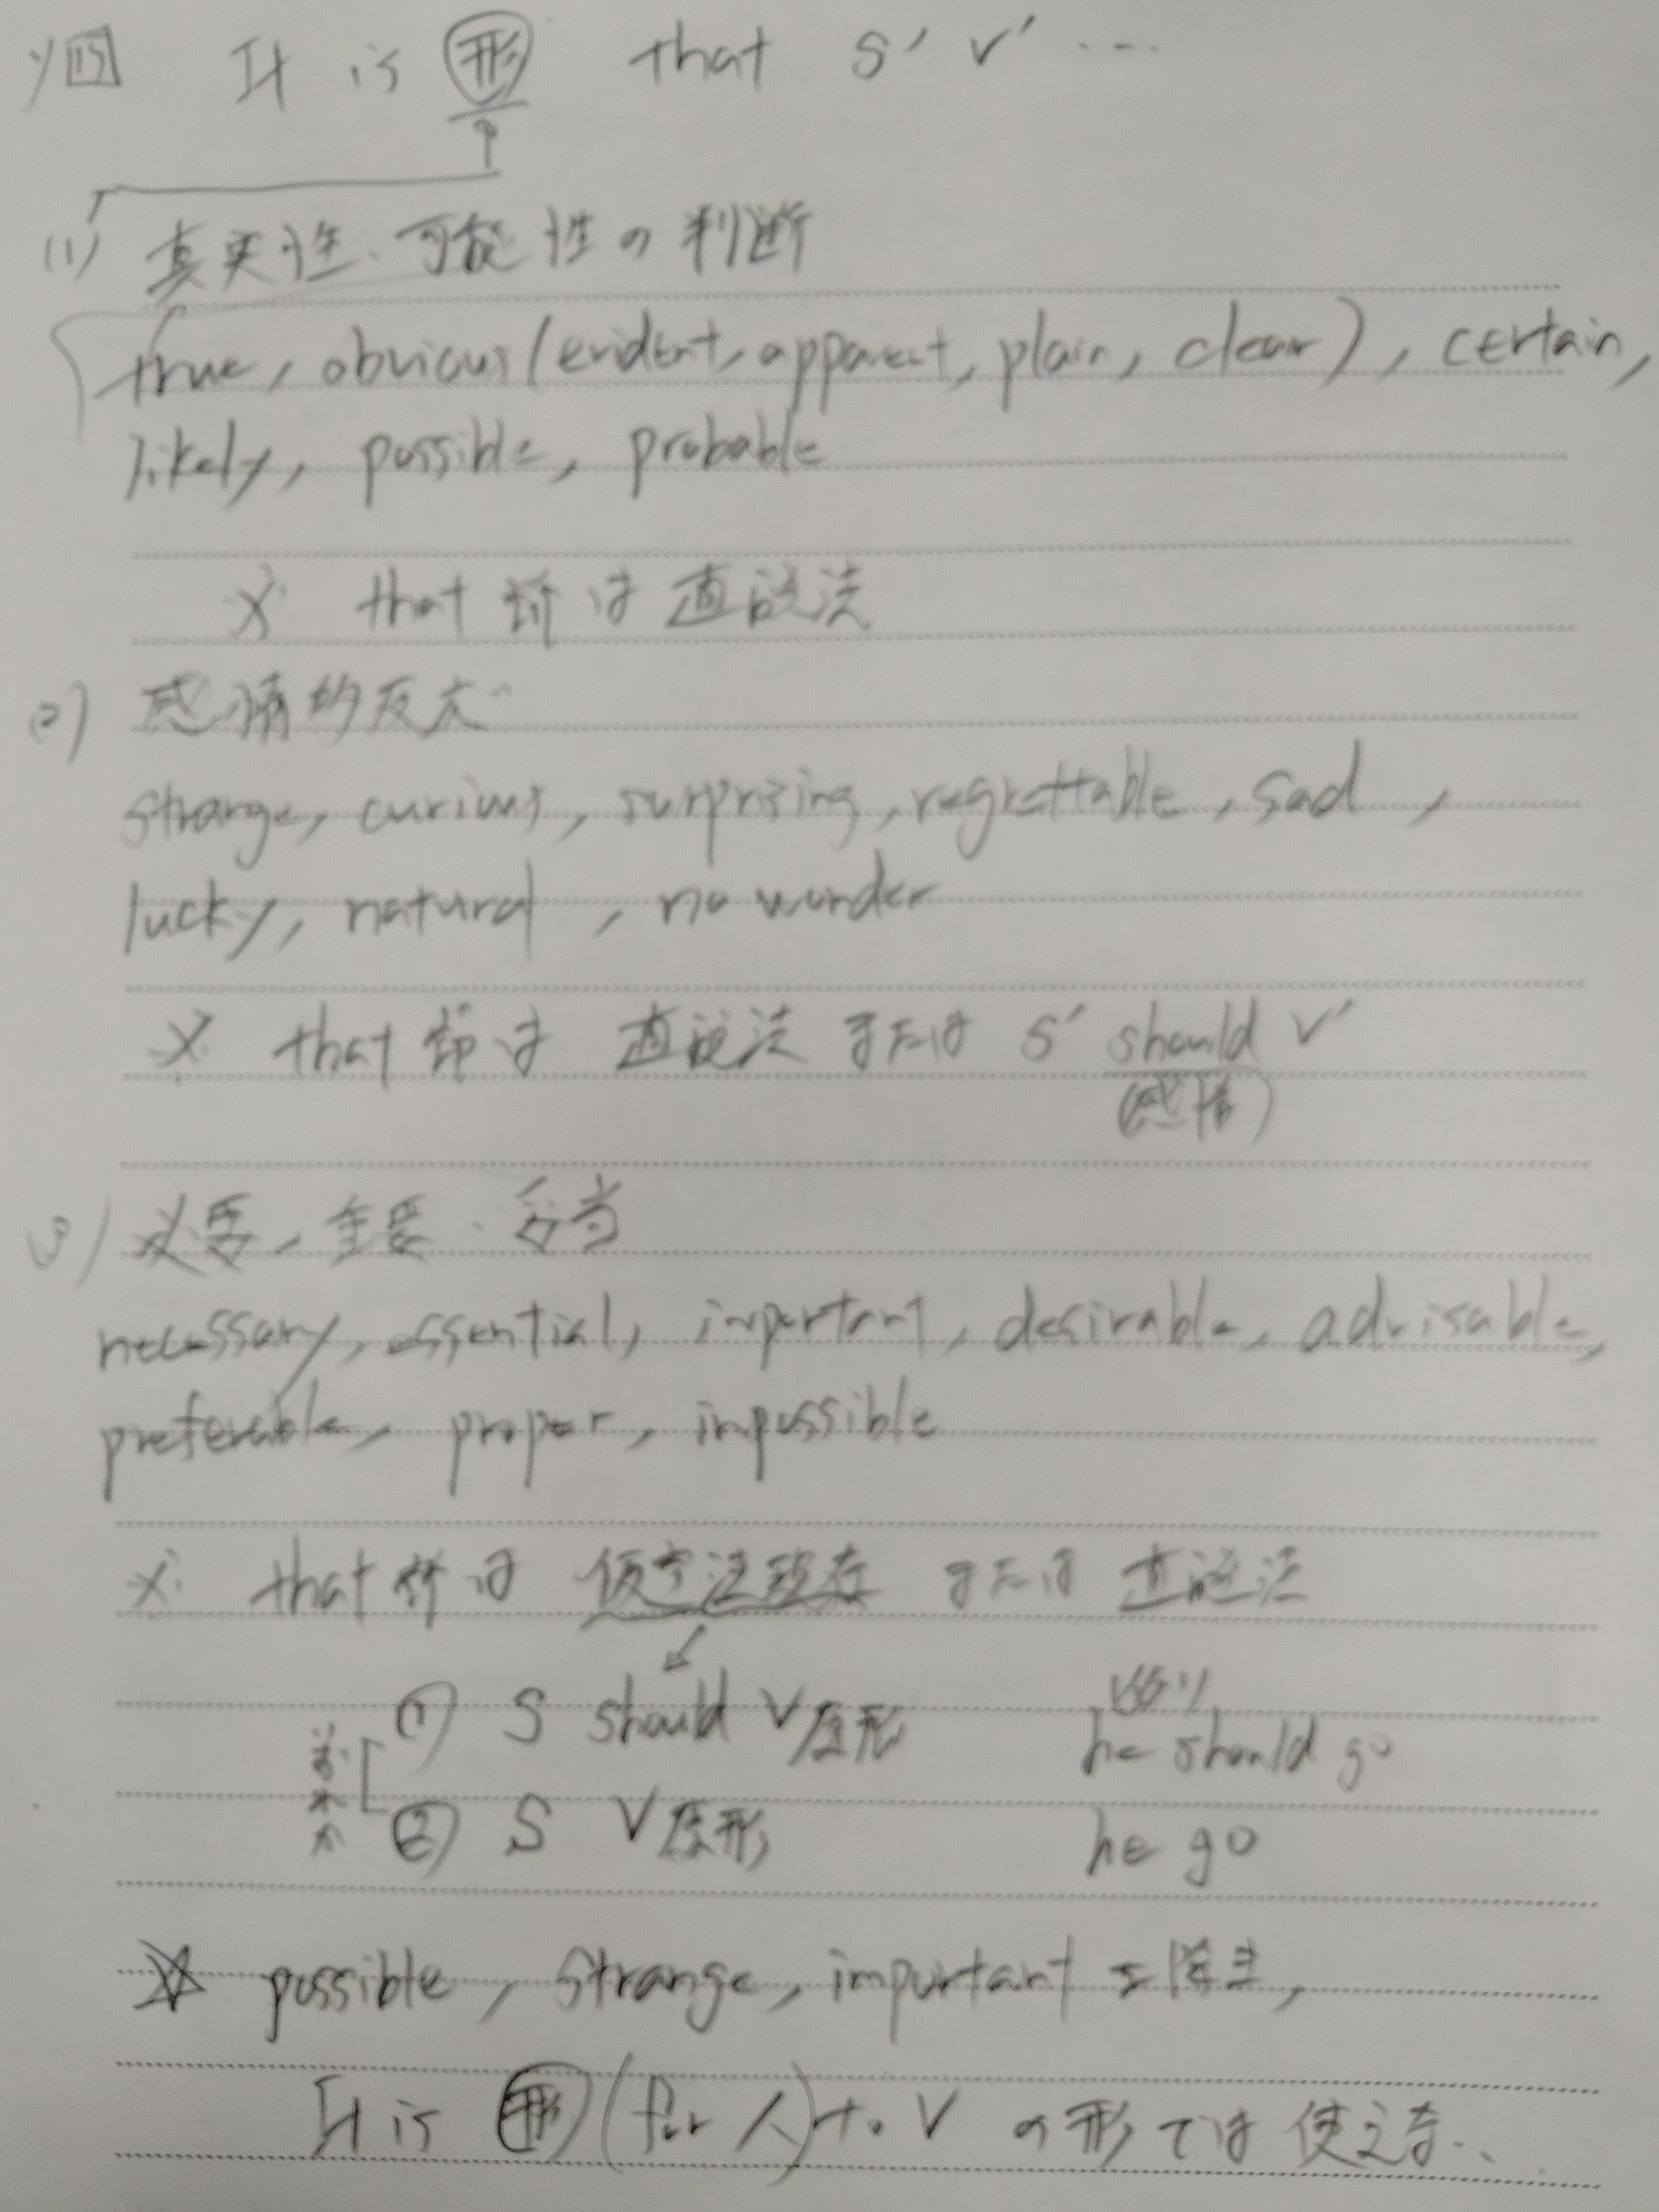 It is 形 that S' V' ...
(1) 真実性、可能性の判断
true, obvious (evident, apparent, plain, clear), certain,
likely, possible, probable
※ that節は直説法
(2) 感情的反応
strange, curious, surprising, regrettable, sad,
lucky, natural, no wonder
※ that節は 直説法 または S' should V'
(感情)
(3) 必要、重要、妥当
necessary, essential, important, desirable, advisable,
preferable, proper, impossible
※ that節は 仮定法現在 または 直説法
① S should V原形 he should go
② S V原形 he go
☆ possible, strange, important を除き,
It is 形 (for 人) to V の形では使えない